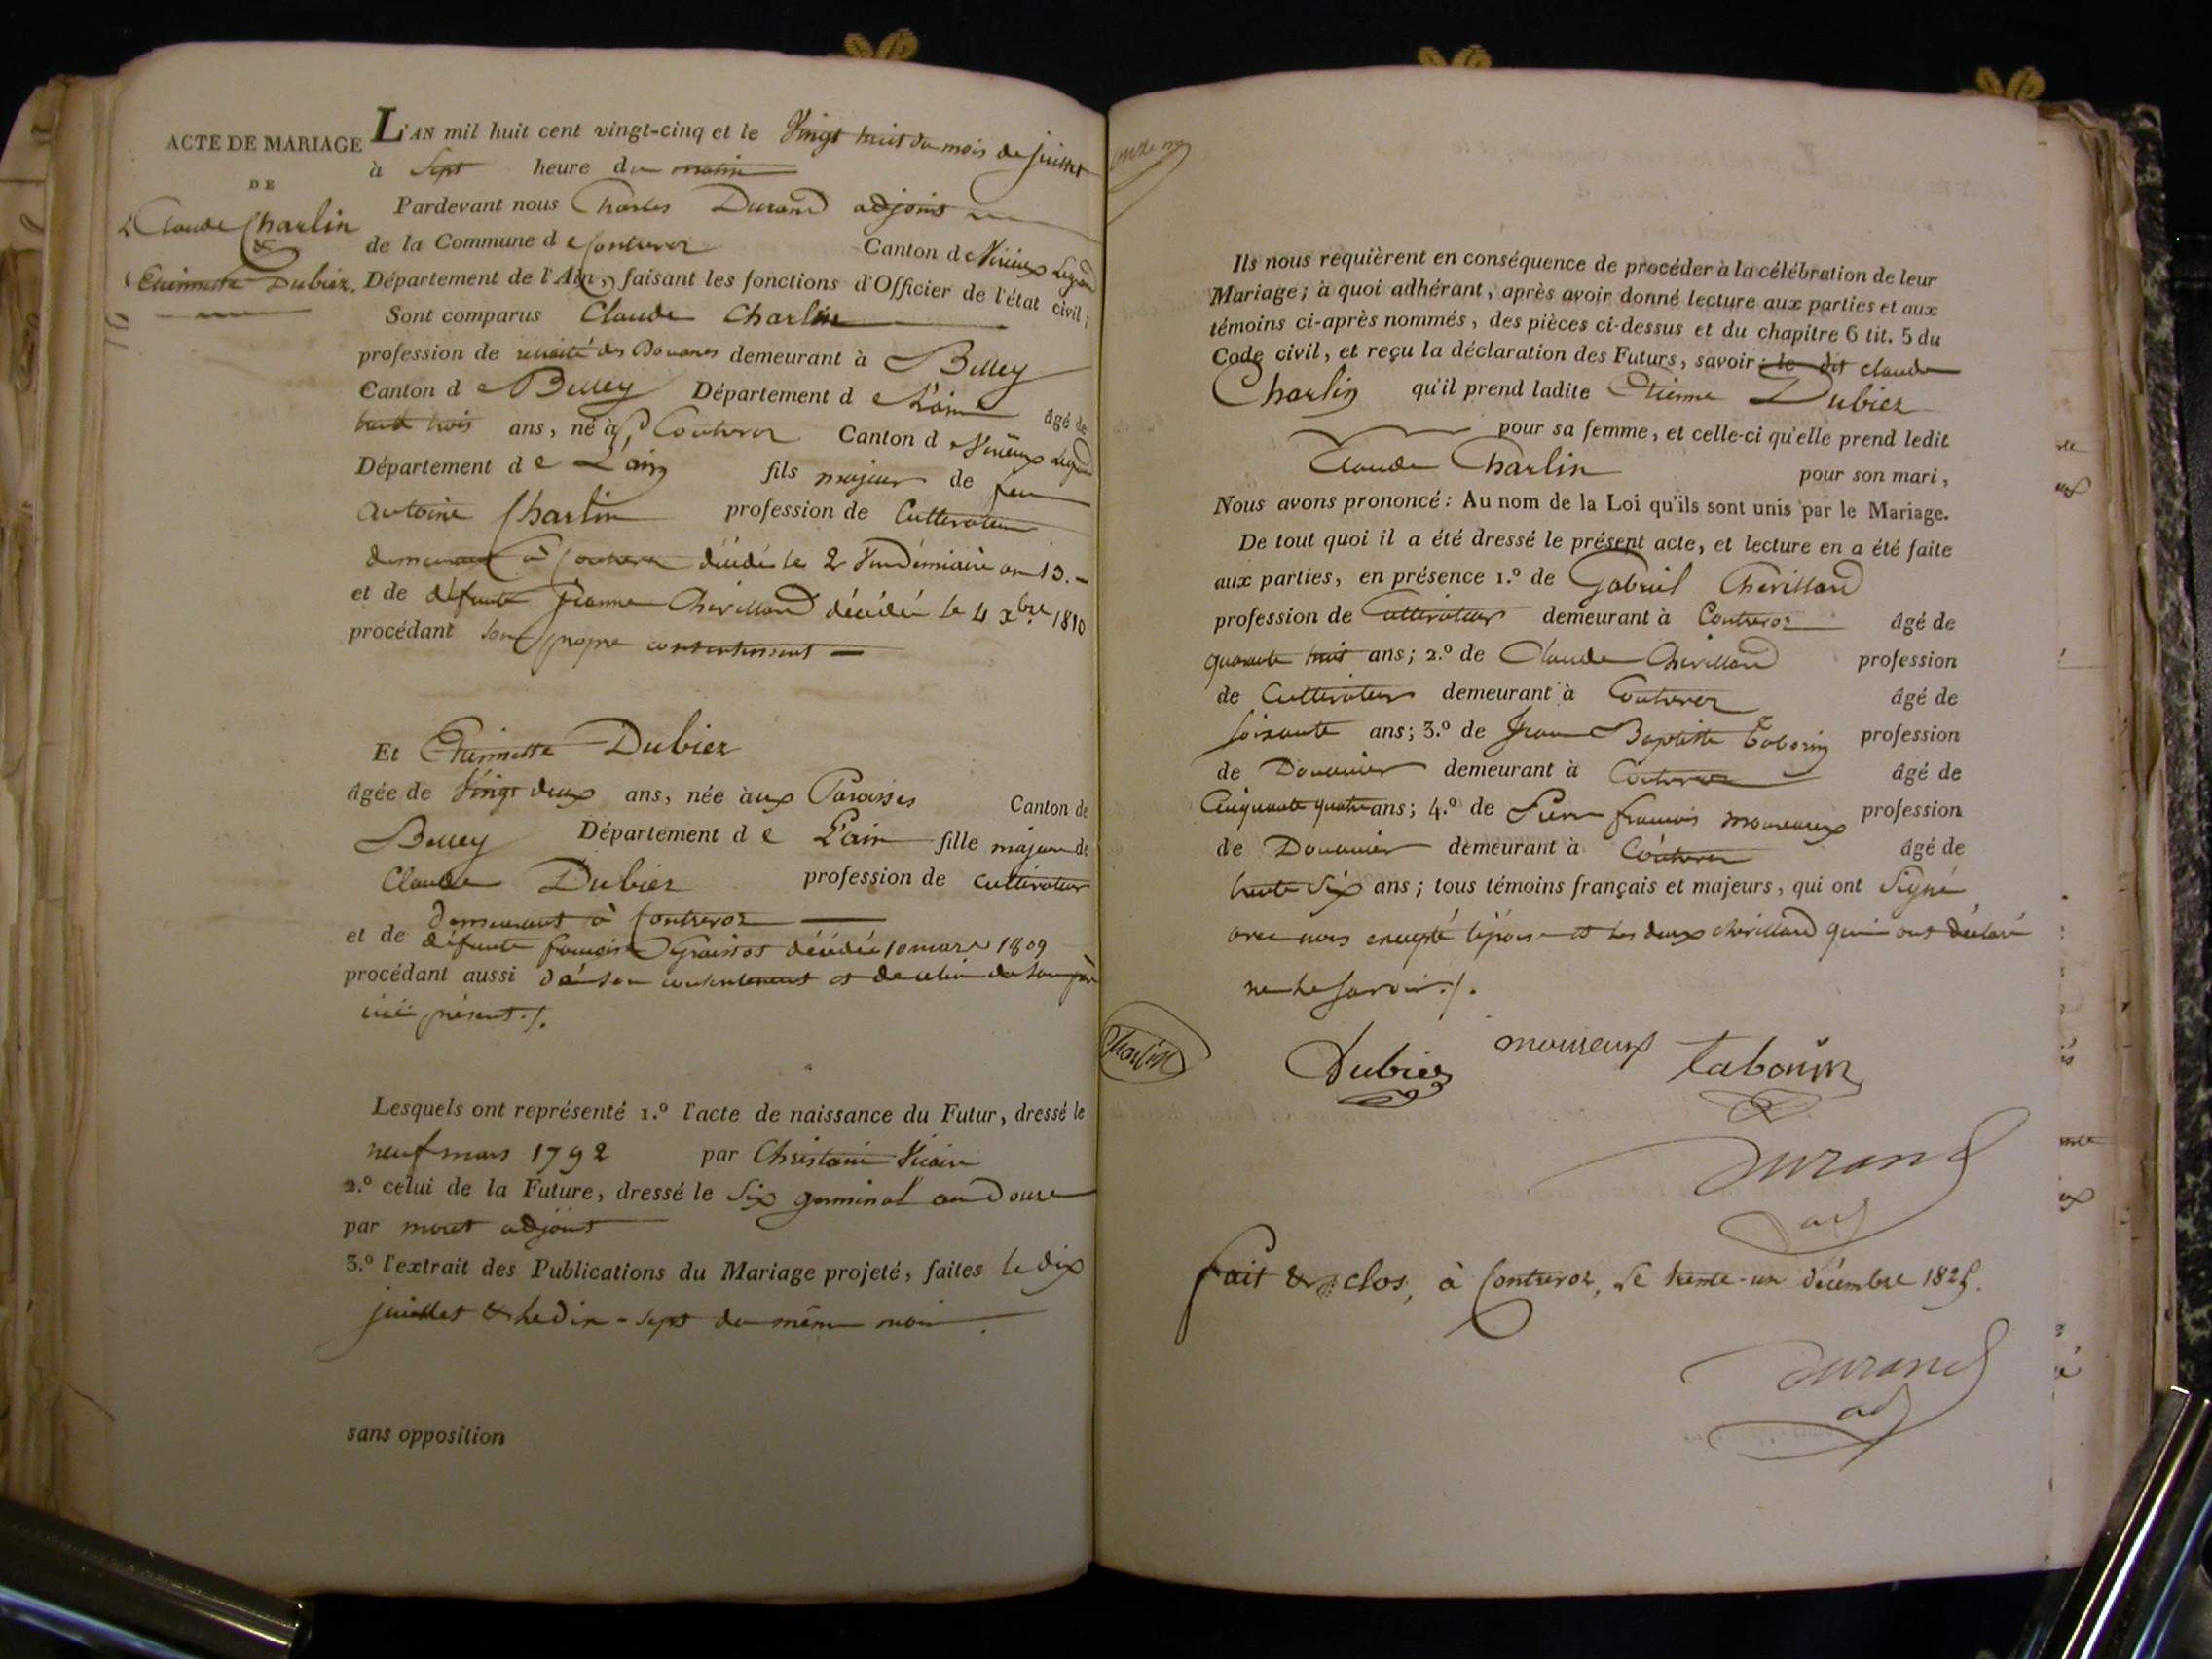 ACTE DE MARIAGE
DE
Claude Charlin
&
Etiennette Dubiez.
L'AN mil huit cent vingt-cinq et le Vingt huit du mois de juillet
à Sept heure du matin
Pardevant nous Charles Durand adjoint
de la Commune de Contrevoz Canton de Virieux Legrand
Département de l'Ain, faisant les fonctions d'Officier de l'état civil;
Sont comparus Claude Charlin
profession de retraité des Douanes demeurant à Belley
Canton de Belley Département de L'ain âgé de
trente trois ans, né à Contrevoz Canton de Virieux Legrand
Département de L'ain fils majeur de feu
antoine Charlin profession de Cultivateur
demeurant à Contrevoz décédé le 2 Vendémiaire an 13.
et de défunte Jeanne Chevillard décédée le 4 xbre 1810
procédant son propre consentement
Et Etiennette Dubiez
âgée de Vingt deux ans, née aux Paroisses Canton de
Belley Département de L'ain fille majeure de
Claude Dubiez profession de cultivateur
demeurant à Contrevoz
et de défunte françoise décédée 10 mars 1809
procédant aussi de son consentement et de celui de son père
ici présent ./.
Lesquels ont représenté 1.º l'acte de naissance du Futur, dressé le
neuf mars 1792 par Christain Vicaire
2.º celui de la Future, dressé le Six germinal an Douze
par moret adjoint
3.º l'extrait des Publications du Mariage projeté, faites le dix
juillet & le dix-sept du même mois.
sans opposition
Ils nous requièrent en conséquence de procéder à la célébration de leur
Mariage; à quoi adhérant, après avoir donné lecture aux parties et aux
témoins ci-après nommés, des pièces ci-dessus et du chapitre 6 tit. 5 du
Code civil, et reçu la déclaration des Futurs, savoir: le dit claude
Charlin qu'il prend ladite Etienne Dubiez
pour sa femme, et celle-ci qu'elle prend ledit
Claude Charlin pour son mari,
Nous avons prononcé: Au nom de la Loi qu'ils sont unis par le Mariage.
De tout quoi il a été dressé le présent acte, et lecture en a été faite
aux parties, en présence 1.º de Gabriel Chevillard
profession de Cultivateur demeurant à Contrevoz âgé de
quarante huit ans; 2.º de Claude Chevillard profession
de Cultivateur demeurant à Contrevoz âgé de
soixante ans; 3.º de Jean Baptiste Tabouin profession
de Douanier demeurant à Contrevoz âgé de
Cinquante quatre ans; 4.º de Pierre françois moureaux profession
de Douanier demeurant à Contrevoz âgé de
trente Six ans; tous témoins français et majeurs, qui ont Signé
avec nous excepté l'épouse et les deux chevillard qui ont déclaré
ne le savoir ./.
Charlin
Dubiez
moureaux
tabouin
Durand
adj
fait & clos, à Contrevoz, le trente-un décembre 1825.
Durand
adj